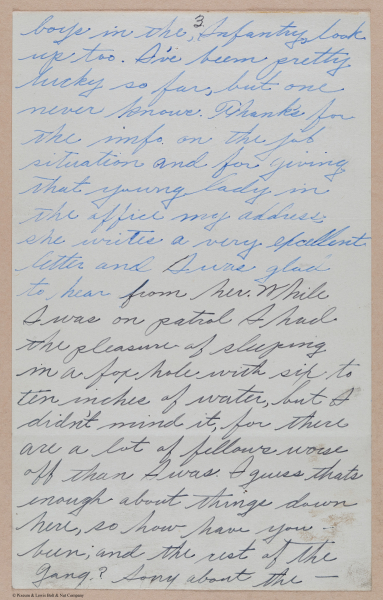 3
boys in the, Infantry, look
up too. I've been pretty
lucky so far, but one
never knows. Thanks for
the info. on the job
situation and for giving
that young lady in
the office my address
she writes a very excellent
letter and I was glad
to hear from her. While
I was on patrol I had
the pleasure of sleeping
in a fox hole with six to
ten inches of water, but I
didn't mind it, for there
are a lot of fellows worse
off than I was. I guess thats
enough about things down
here, so how have you
been, and the rest of the
Gang? Sorry about the —